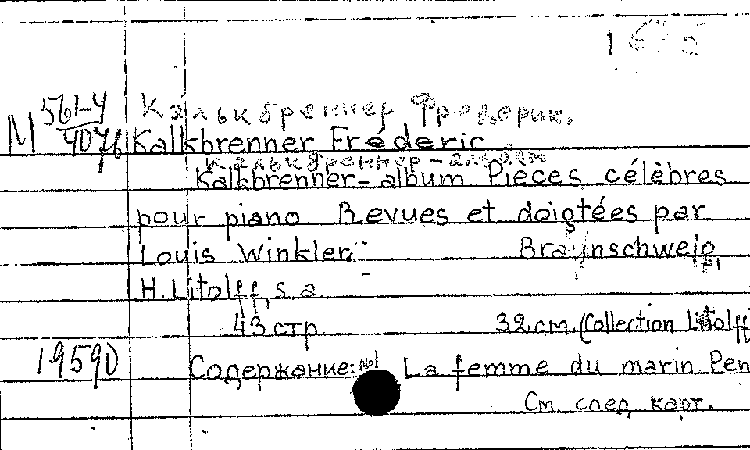 М 561-4
4076
Калькбреннер Фредерик.
Kalkbrenner Fréderic
Калькбреннер-альбом
Kalkbrenner-album Pièces célèbres
pour piano Revues et doigtées par
Louis Winkler. Braunschweig,
H. Litolff, s.a.
43 стр. 32 cm. (Collection Litolff
19590 Содержание: №1 La femme du marin Pen
См. след. карт.